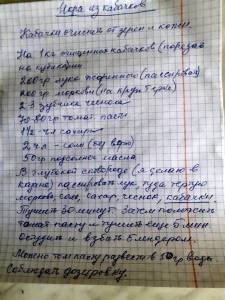 Икра из кабачков
Кабачки очистить от зерен и кожи.
На 1 кг очищенных кабачков (порезать
на кубики)
200гр лука жаренного (пассировать)
200гр моркови (на круп. терке)
2-3 зубчика чеснока
70-80гр томат паст
1½ ч.л сахар
2 ч.л - соли (без верха)
50гр подсолн. масла
В глубокой сковороде (я делаю в
казане) пассировать лук туда тертую
морковь, соль, сахар, чеснок, кабачки.
Тушить 30 минут. Затем положить
томат пасту и тушить еще 5 мин
Остудить и взбить блендером.
Можно том пасту развести в 50гр воды
Соблюдай дозировку.